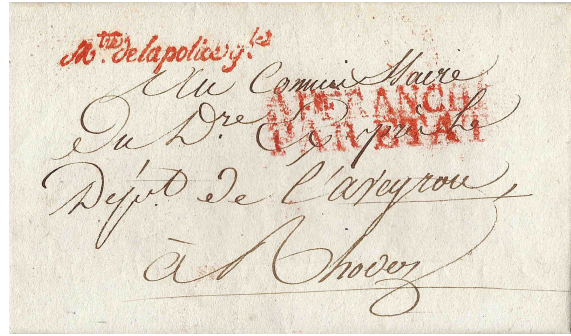 Mtre. de la police gle
Au Commissaire
AFFRANCHI
PAR ETAT
du Dre. Ex. près le
Dépt. de l'aveyron,
à Rhodez